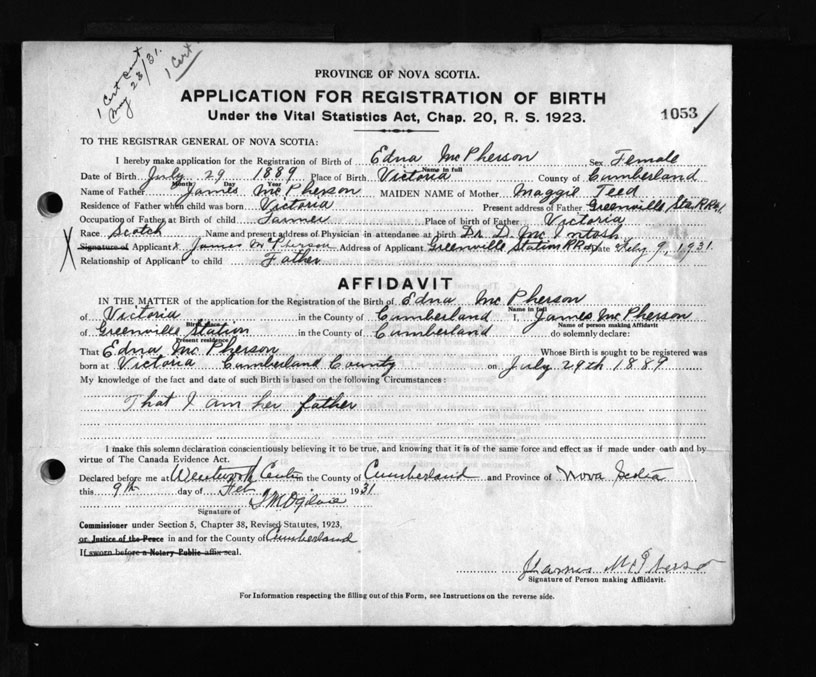 1 Cert sent
May 23/31.
1 Cert.
PROVINCE OF NOVA SCOTIA.
APPLICATION FOR REGISTRATION OF BIRTH
Under the Vital Statistics Act, Chap. 20, R. S. 1923.
1053
TO THE REGISTRAR GENERAL OF NOVA SCOTIA:
I hereby make application for the Registration of Birth of Edna McPherson Sex Female
Name in full
Date of Birth July 29 1889 Place of Birth Victoria County of Cumberland
Month Day Year
Name of Father James McPherson MAIDEN NAME of Mother Maggie Teed
Residence of Father when child was born Victoria Present address of Father Greenville Sta. RR#1
Occupation of Father at Birth of child Farmer Place of birth of Father Victoria
Race Scotch Name and present address of Physician in attendance at birth Dr. D. McIntosh
Signature of Applicant X James McPherson Address of Applicant Greenville Station RR#1 Date Feby 9, 1931.
Relationship of Applicant to child Father
AFFIDAVIT
IN THE MATTER of the application for the Registration of the Birth of Edna McPherson
Name in full
of Victoria in the County of Cumberland I, James McPherson
Birth place Name of person making Affidavit
of Greenville Station in the County of Cumberland do solemnly declare:
Present residence
That Edna McPherson Whose Birth is sought to be registered was
born at Victoria Cumberland County on July 29th 1889
My knowledge of the fact and date of such Birth is based on the following Circumstances:
That I am her father
I make this solemn declaration conscientiously believing it to be true, and knowing that it is of the same force and effect as if made under oath and by
virtue of The Canada Evidence Act.
Declared before me at Wentworth Centre in the County of Cumberland and Province of Nova Scotia
this 9th day of Feb 1931
Signature of
Commissioner under Section 5, Chapter 38, Revised Statutes, 1923,
or Justice of the Peace in and for the County of Cumberland
If sworn before a Notary Public affix seal.
James McPherson
Signature of Person making Affidavit.
For Information respecting the filling out of this Form, see Instructions on the reverse side.